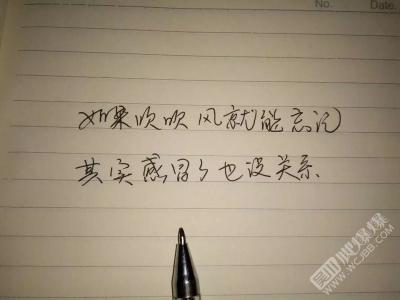 No. Date.
如果吹吹风就能忘记
其实感冒了也没关系
WWW.WCJBB.COM